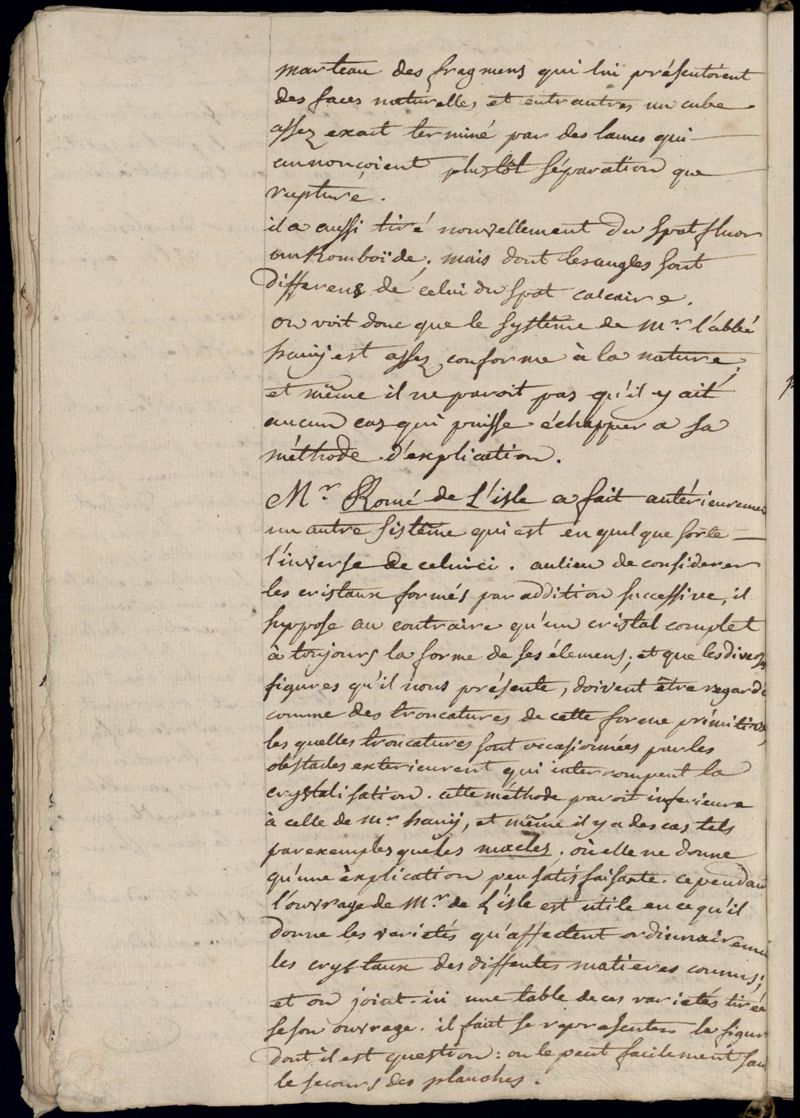 marteau des fragmens qui lui présentoient
des faces naturelles et entr'autres un cube
assez exact terminé par des lames qui
annonçoient plustôt séparation que
rupture.
il a aussi tiré nouvellement du spat fluor
un Romboïde, mais dont les angles sont
differens de celui du spat calcaire.
on voit donc que le système de mr. l'abbé
hauij est assez conforme à la nature,
et même il ne paroit pas qu'il y ait
aucun cas qui puisse échapper a sa
méthode d'explication.
Mr. Romé de L'isle a fait antérieuremen
un autre sistême qui est en quelque sorte
l'inverse de celui ci. au lieu de considerer
les cristaux formés par addition successive, il
suppose au contraire qu'un cristal complet
à toujours la forme de ses élemens, et que les divers
figures qu'il nous présente, doivent être regardé
comme des troncatures de cette forme primitive,
les quelles troncatures sont occasionnées par les
obstacles exterieurent qui interrompent la
crystalisation. cette méthode paroit inferieure
à celle de mr. hauij, et même il y a des cas tels
par exemples que les macles, où elle ne donne
qu'une explication peu satisfaisante. cependan
l'ouvrage de Mr. de L'isle est utile en ce qu'il
donne les varietés qu'affectent ordinairemen
les crystaux des diffentes matieres connus;
et on joint ici une table de ces varietés tirée
de son ouvrage. il faut se representer le figur
dont il est question: on le peut facilement san
le secours des planches.